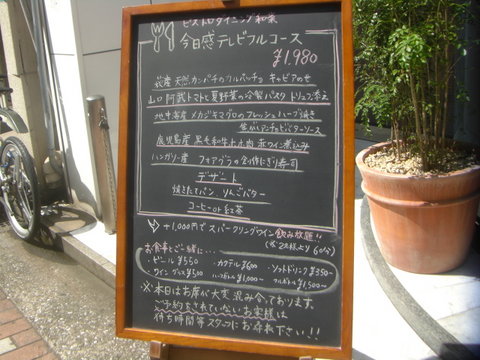 ビストロダイニング和楽
今日感テレビフルコース
¥1,980
萩産 天然カンパチのカルパッチョ キャビアのせ
山口 阿武トマトと夏野菜の冷製パスタ トリュフ添え
地中海産 メカジキマグロのフレッシュハーブ焼き
焦がしアンチョビバターソース
鹿児島産 黒毛和牛上ホホ肉 赤ワイン煮込み
ハンガリー産 フォアグラの創作にぎり寿司
デザート
焼きたてパン りんごバター
コーヒー or 紅茶
+1,000円でスパークリングワイン飲み放題!!
(※2名様より 60分)
お食事とご一緒に…
・ビール ¥550 ・カクテル ¥600 ・ソフトドリンク ¥350~
・ワイン グラス ¥500 ハーフボトル ¥1,000~ フルボトル ¥1,500~
※本日はお席が大変混み合っております。
ご予約をされていないお客様は
待ち時間等スタッフにお尋ね下さい!!